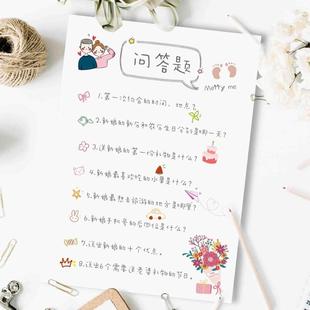 问答题
Marry me
1.第一次约会的时间、地点?
2.新娘的新历和农历生日分别是哪一天?
3.送新娘的第一份礼物是什么?
4.新娘最喜欢吃的水果是什么?
5.新娘最想去旅游的地方是哪里?
6.新娘手机号的后四位是什么?
7.说出新娘的十个优点。
8.说出6个需要送老婆礼物的节日。